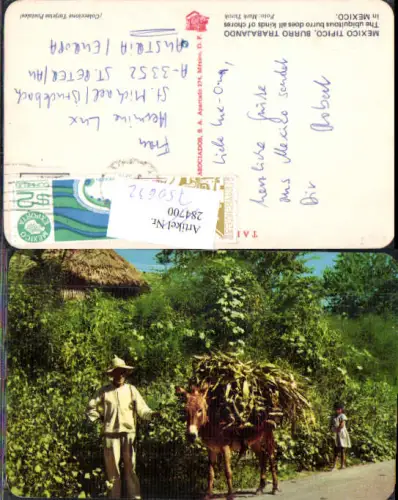 MEXICO TIPICO, BURRO TRABAJANDO
The ubiquitous burro does all kinds of chores
in MEXICO.
Foto: Mark Turok
(Colecciones Tarjetas Postales)
Liebe
herzliche Grüße
aus Mexico sendet
Dir
Robert
ASOCIADOS, S. A. Apartado 874, México, D. F.
Frau
Hermine Lux
St. Michael/Bruckbach
A-3352 ST. PETER/AU
AUSTRIA / EUROPA
MEXICO
EXPORTA
Artikel-Nr.
284700